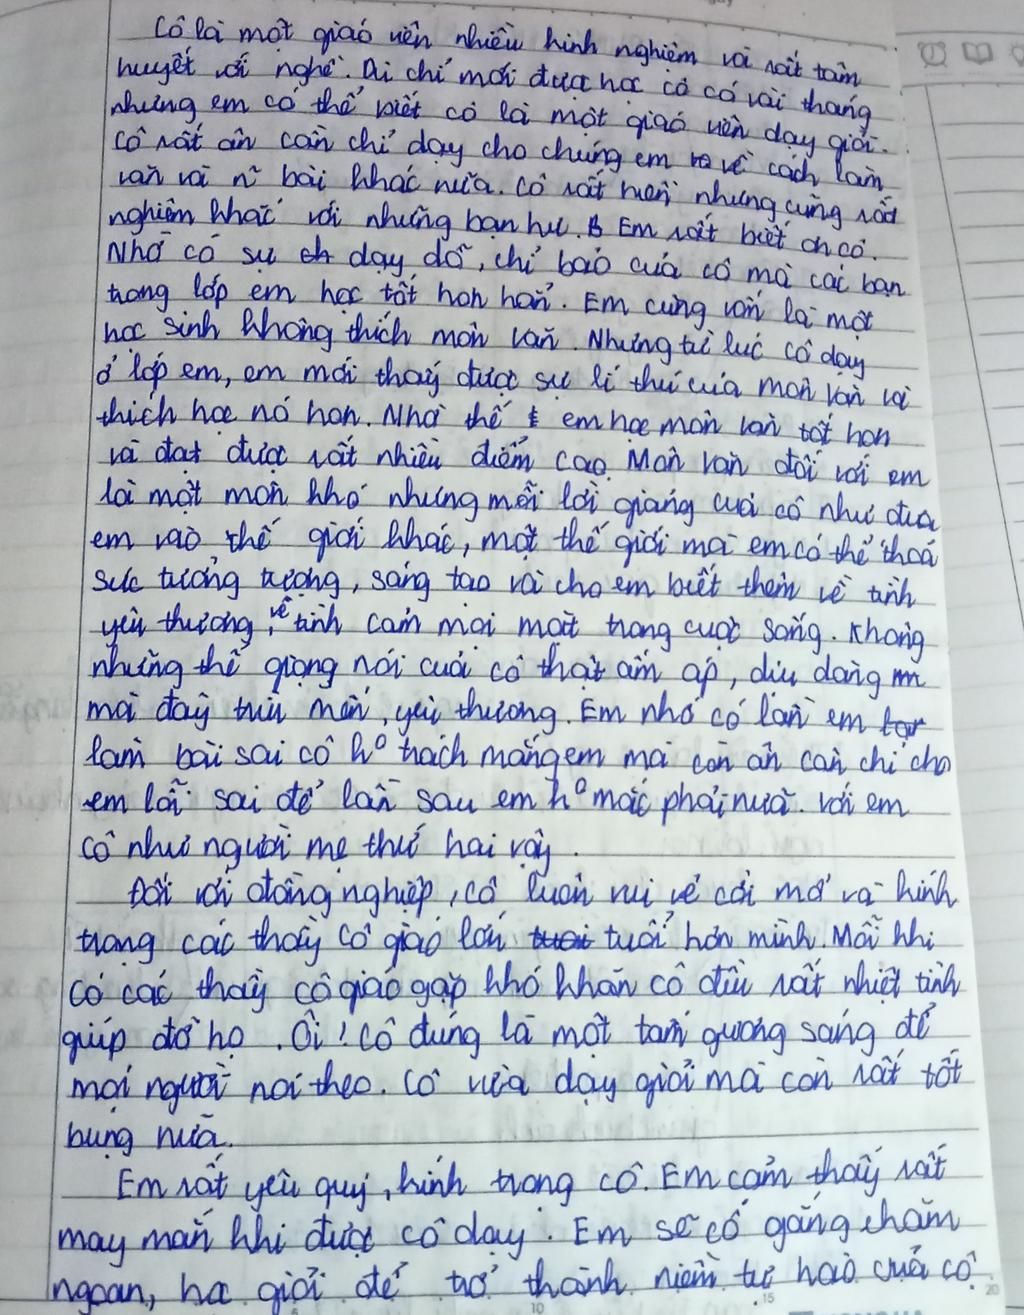 Cô là một giáo viên nhiều kinh nghiệm và rất tâm
huyết với nghề. Dù chỉ mới được học cô có vài tháng
nhưng em có thể biết cô là một giáo viên dạy giỏi.
Cô rất ân cần chỉ dạy cho chúng em về cách làm
văn và n~ bài khác nữa. Cô rất hiền nhưng cũng rất
nghiêm khắc với những bạn hư. Em rất biết ơn cô.
Nhờ có sự dạy dỗ, chỉ bảo của cô mà các bạn
trong lớp em học tốt hơn hẳn. Em cũng vốn là một
học sinh không thích môn văn. Nhưng từ lúc cô dạy
ở lớp em, em mới thấy được sự lí thú của môn văn và
thích học nó hơn. Nhờ thế em học môn văn tốt hơn
và đạt được rất nhiều điểm cao. Môn văn đối với em
là một môn khó nhưng mỗi lời giảng của cô như đưa
em vào thế giới khác, một thế giới mà em có thể thoả
sức tưởng tượng, sáng tạo và cho em biết thêm về tình
yêu thương, về tình cảm mọi mặt trong cuộc sống. Không
những thế giọng nói của cô thật ấm áp, dịu dàng
mà đầy trìu mến, yêu thương. Em nhớ có lần em
làm bài sai cô k° trách mắng em mà còn ân cần chỉ cho
em lỗi sai để lần sau em k° mắc phải nữa. Với em
cô như người mẹ thứ hai vậy.
Đối với đồng nghiệp, cô luôn vui vẻ cởi mở và kính
trọng các thầy cô giáo lớn tuổi hơn mình. Mỗi khi
có các thầy cô giáo gặp khó khăn cô đều rất nhiệt tình
giúp đỡ họ. Ôi! Cô đúng là một tấm gương sáng để
mọi người noi theo. Cô vừa dạy giỏi mà còn rất tốt
bụng nữa.
Em rất yêu quý, kính trọng cô. Em cảm thấy rất
may mắn khi được cô dạy. Em sẽ cố gắng chăm
ngoan, học giỏi để trở thành niềm tự hào của cô.
10
15
20